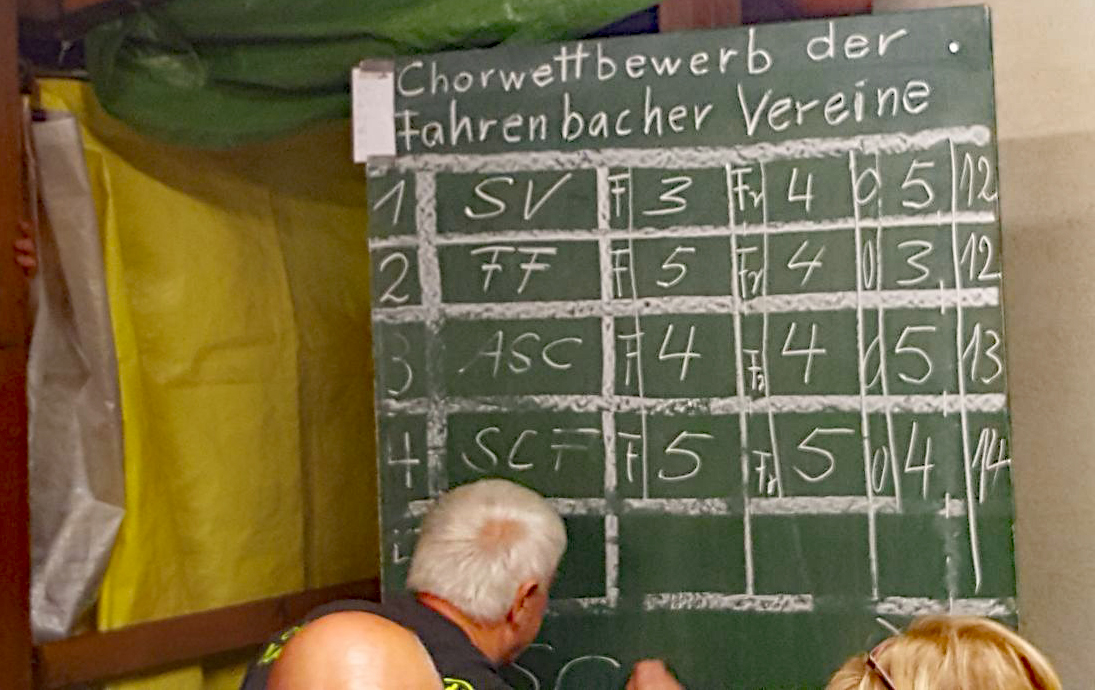 Chorwettbewerb der
Fahrenbacher Vereine
1 SV F 3 Fr 4 O 5 12
2 FF F 5 Fr 4 O 3 12
3 ASC F 4 Fr 4 O 5 13
4 SCF F 5 Fr 5 O 4 14
SC